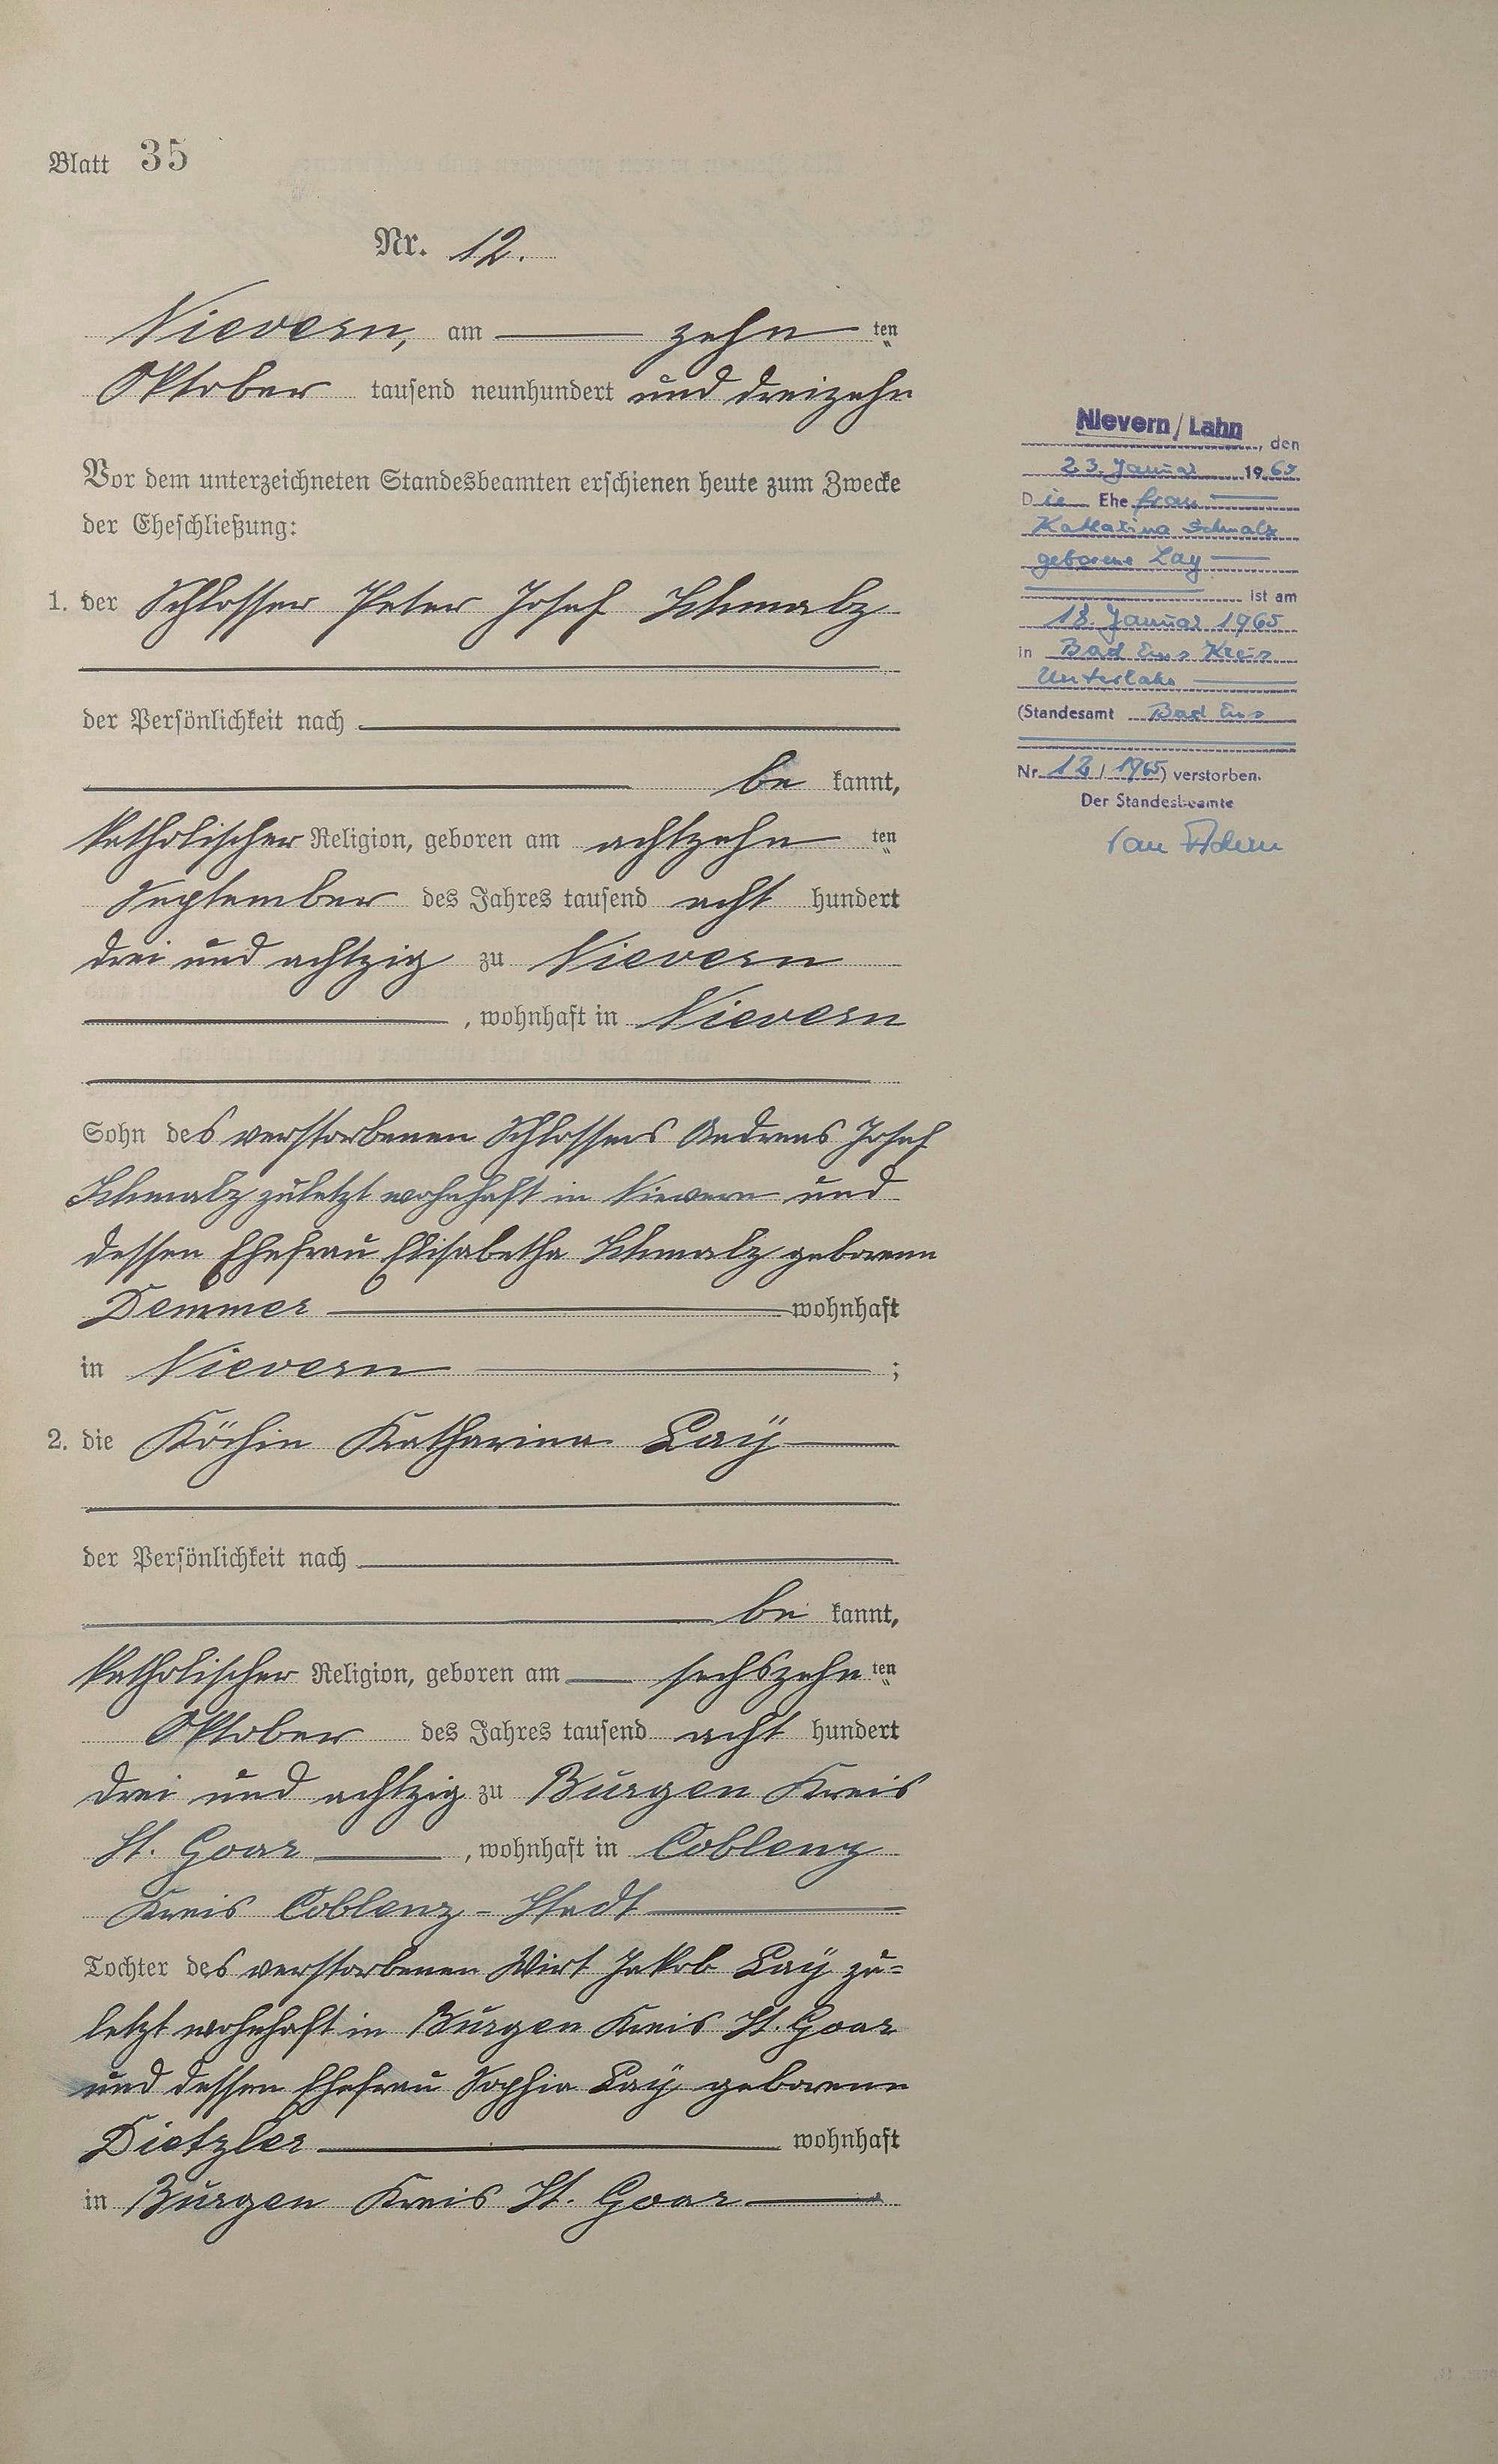 Blatt 35
Nr. 12.
Nievern, am zehn ten
Oktober tausend neunhundert und dreizehn
Vor dem unterzeichneten Standesbeamten erschienen heute zum Zwecke
der Eheschließung:
1. der Schlosser Peter Josef Schmalz
der Persönlichkeit nach
be kannt,
katholischer Religion, geboren am achtzehn ten
September des Jahres tausend acht hundert
drei und achtzig zu Nievern
, wohnhaft in Nievern
Sohn des verstorbenen Schlossers Andreas Josef
Schmalz zuletzt wohnhaft in Nievern und
dessen Ehefrau Elisabetha Schmalz geborene
Demmer wohnhaft
in Nievern ;
2. die Köchin Katharina Laÿ
der Persönlichkeit nach
be kannt,
katholischer Religion, geboren am sechszehn ten
Oktober des Jahres tausend acht hundert
drei und achtzig zu Burgen Kreis
St. Goar , wohnhaft in Coblenz
Kreis Coblenz-Stadt
Tochter des verstorbenen Wirt Jakob Laÿ zu=
letzt wohnhaft in Burgen Kreis St. Goar
und dessen Ehefrau Sophia Laÿ geborene
Dietzler wohnhaft
in Burgen Kreis St. Goar
Nievern/Lahn, den
23. Januar 1965
Die Ehefrau
Katharina Schmalz
geborene Lay
ist am
18. Januar 1965
in Bad Ems Kreis
Unterlahn
(Standesamt Bad Ems
Nr. 12/1965) verstorben.
Der Standesbeamte